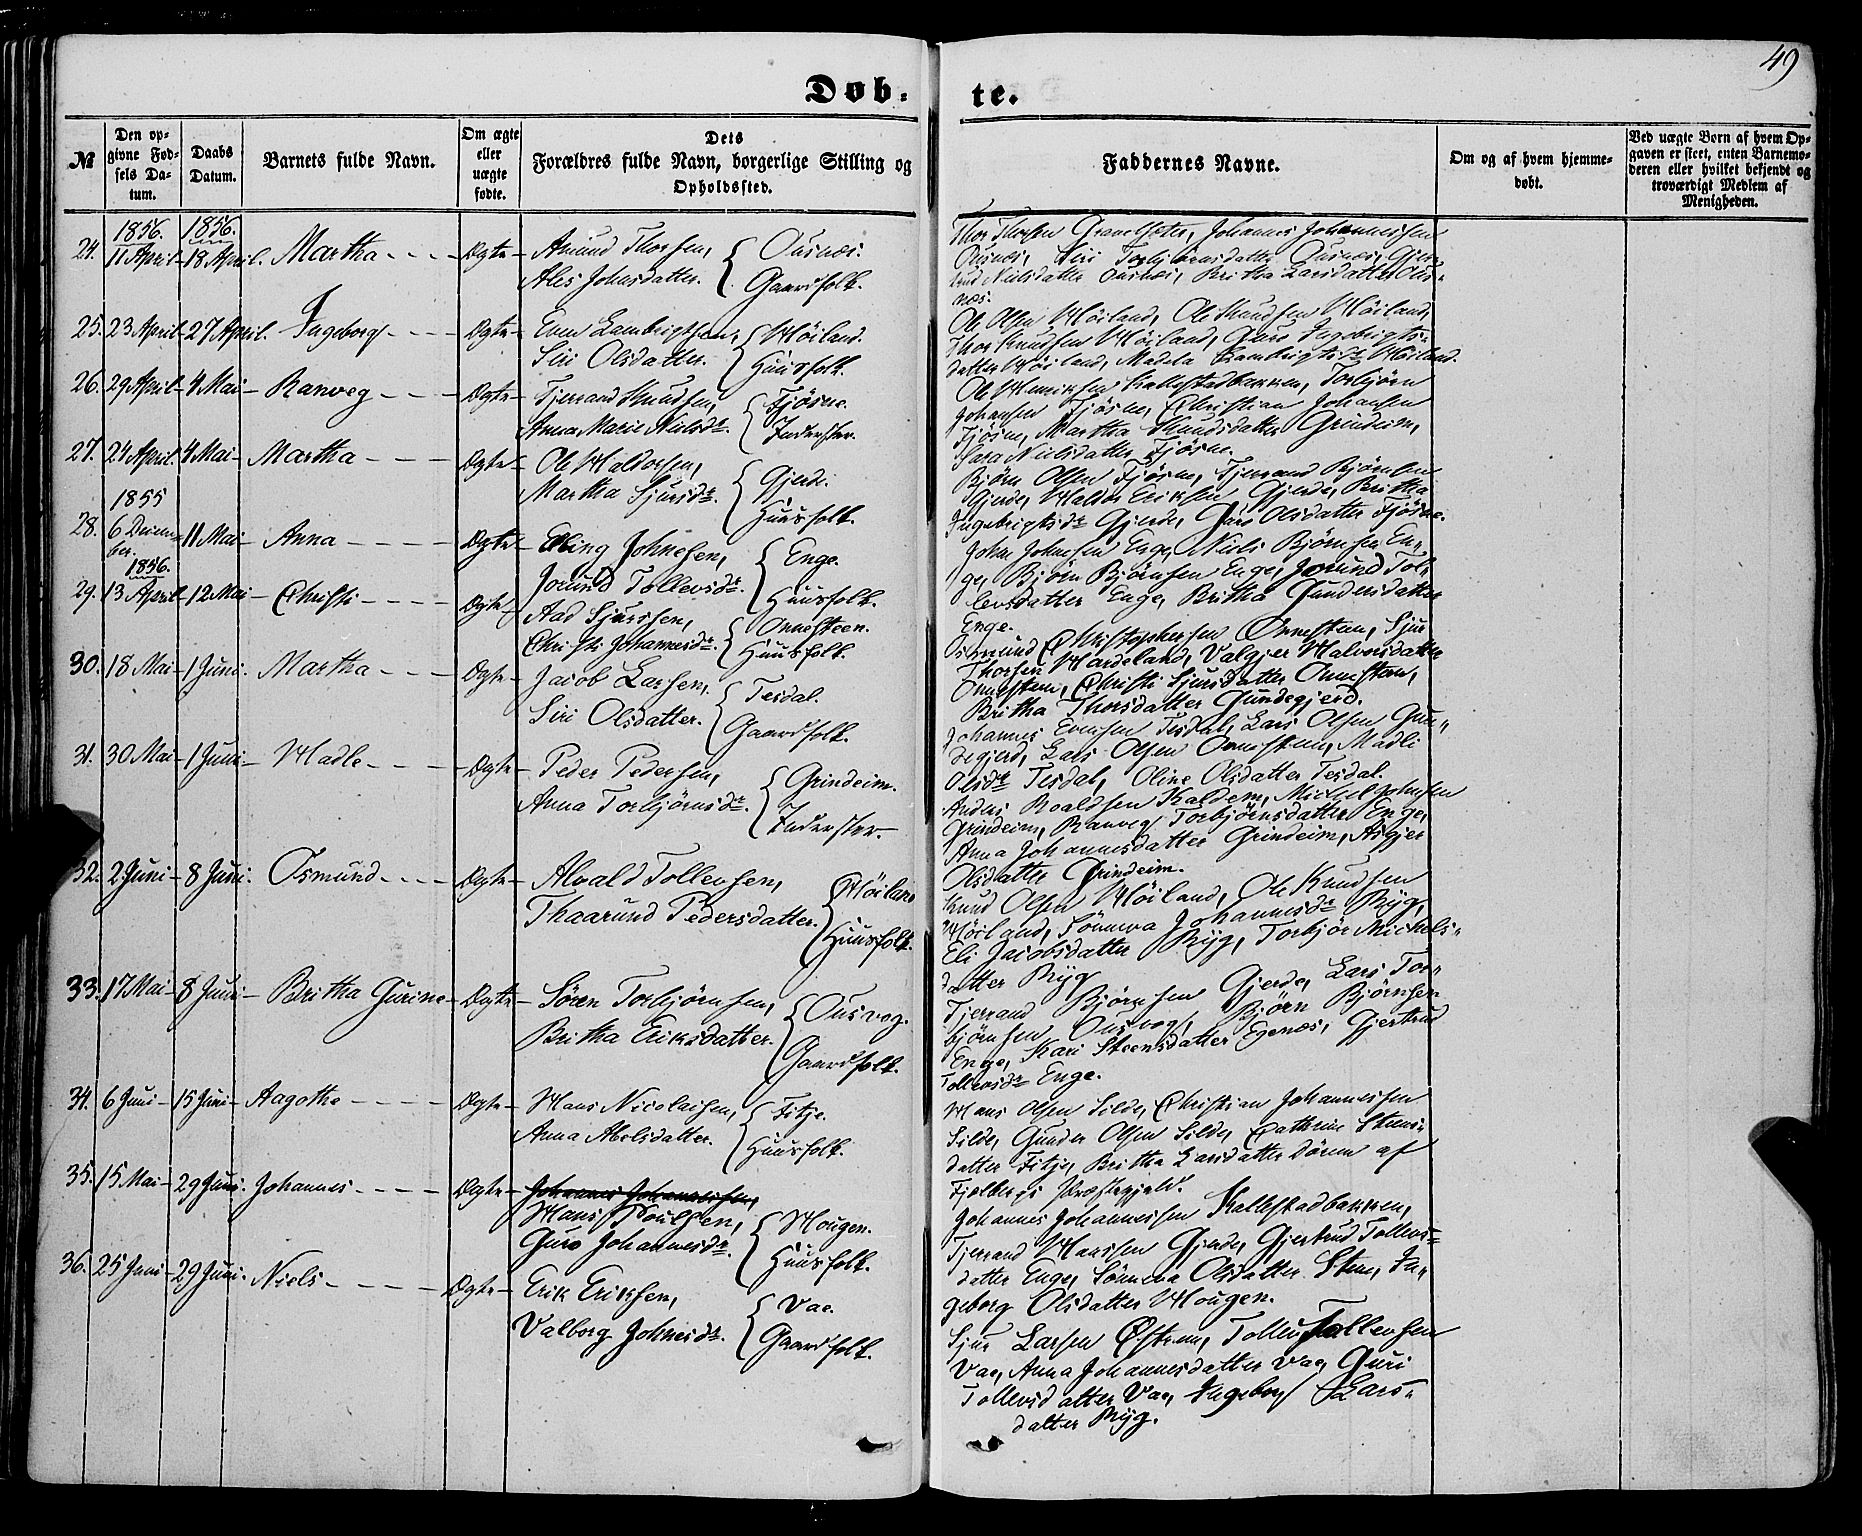 49
Døb-
te.
№
Den op-
givne Fød-
sels Da-
tum.
Daabs
Datum.
Barnets fulde Navn.
Om ægte
eller
uægte
fødte.
Dets
Forældres fulde Navn, borgerlige Stilling og
Opholdssted.
Faddernes Navne.
Om og af hvem hjemme-
døbt.
Ved uægte Børn af hvem Op-
gaven er skeet, enten Barnemo-
deren eller hvilket bekjendt og
troværdigt Medlem af
Menigheden.
1856. 1856.
24. 11 April - 18 April. Martha - - - Ægte - Amund Thorsen, Ousnæs.
Ales Johnsdatter. Gaardfolk.
Thor Thorsen, Johannes Johannessen
Ousnæs, Siri Torbjørnsdatter Ousnæs, Gjer-
trud Nielsdatter Ousnæs, Britha Larsdatter Ous-
næs.
25. 23 April - 27 April. Ingeborg - - - Ægte - Even Lambrigtsen, Høiland.
Siri Olsdatter. Huusfolk.
Ole Olsen Høiland, Ole Knudsen Høiland,
Thor Knudsen Høiland, Guro Ingebrigts-
datter Høiland, Madela Lambrigtsdr Høiland.
26. 29 April - 4 Mai - Ranveg - - - Ægte - Tjerrand Knudsen, Fjøsne.
Anna Marie Nielsdr. Inderster.
Ole Henriksen Kallestadbakken, Torbjørn
Johansen Fjøsne, Christian Johansen
Fjøsne, Martha Knudsdatter Grindeim,
Sara Nielsdatter Fjøsne.
27. 24 April. 4 Mai - Martha - - - Ægte - Ole Haldorsen, Gjerde.
Martha Sjursdr. Huusfolk.
Bjørn Olsen Fjøsne, Tjerrand Bjørnsen
Gjerde, Haldor Eriksen Gjerde, Britha
Ingebrigtsdr Gjerde, Guro Olsdatter Fjøsne.
1855
28. 6 Decem-
ber. 11 Mai - Anna - - - Ægte - Elling Johnesen, Enge.
Jorund Tollevsdr. Huusfolk.
John Johnesen Enge, Niels Bjørnsen En-
ge, Bjørn Bjørnsen Enge, Jorund Tol-
levsdatter Enge, Britha Gundersdatter
Enge.
1856.
29. 13 April - 12 Mai - Christi - - - Ægte - Aad Sjursen, Onnesteen.
Christi Johannesdr. Huusfolk.
Osmund Christophersen Onnesteen, Sjur
Thorsen Hardeland, Valgjer Halvorsdatter
Onnesteen, Christi Sjursdatter Onnesteen,
Britha Thorsdatter Gundegjerd.
30. 18 Mai - 1 Juni - Martha - - - Ægte - Jacob Larsen, Tesdal.
Siri Olsdatter. Gaardfolk.
Johannes Evensen Tesdal, Lars Olsen Gun-
degjerd, Lars Olsen Onnesteen, Madli
Olsdr Tesdal, Oline Olsdatter Tesdal.
31. 30 Mai - 1 Juni - Madle - - - Ægte - Peder Pedersen, Grindeim.
Anna Torbjørnsdr. Inderster.
Anders Roaldsen Kaldem, Michel Johnsen
Grindeim, Ranveg Torbjørnsdatter Enge,
Anna Johannesdatter Grindeim, Asgjer
Olsdatter Grindeim.
32. 2 Juni - 8 Juni. Osmund - - - Ægte - Alvald Tollevsen, Høiland
Thaarund Pedersdatter. Huusfolk.
Knud Olsen Høiland, Ole Knudsen
Høiland, Sønneva Johannesdr Ryg,
Eli Jacobsdatter Ryg, Torbjør Michels-
datter Ryg
33. 17 Mai - 8 Juni - Britha Gurine - Ægte - Søren Torbjørnsen, Ousvog.
Britha Eriksdatter. Gaardfolk.
Tjerrand Bjørnsen Gjerde, Lars Tor-
bjørnsen Ousvog, Bjørn Bjørnsen
Enge, Kari Steensdatter Egenæs, Gjertrud
Tollevsdr Enge.
34. 6 Juni - 15 Juni - Aagothe - - - Ægte - Hans Nicolaisen, Fitje.
Anna Abelsdatter. Huusfolk.
Hans Olsen Silde, Christian Johannessen
Silde, Gunder Olsen Silde, Cathrine Steens-
datter Fitje, Britha Larsdatter Døren af
Fjelbergs Præstegjeld.
35. 15 Mai - 29 Juni. Johannes - - - Ægte - Johannes Johannessen,
Hans Poulsen, Hougen.
Guro Johannesdr. Huusfolk.
Johannes Johannessen Kallestadbakken,
Tjerrand Hanssen Gjerde, Gjertrud Tollevs-
datter Enge, Sønneva Olsdatter Steen, In-
geborg Olsdatter Hougen.
36. 25 Juni - 29 Juni. Niels - - - Ægte - Erik Eriksen, Vae.
Valborg Johnesdr. Gaardfolk.
Sjur Larsen Østrem, Tollev Tollevsen
Vae, Anna Johannesdatter Vae, Guri
Tollevsdatter Vae, Ingeborg Lars-
datter Ryg.